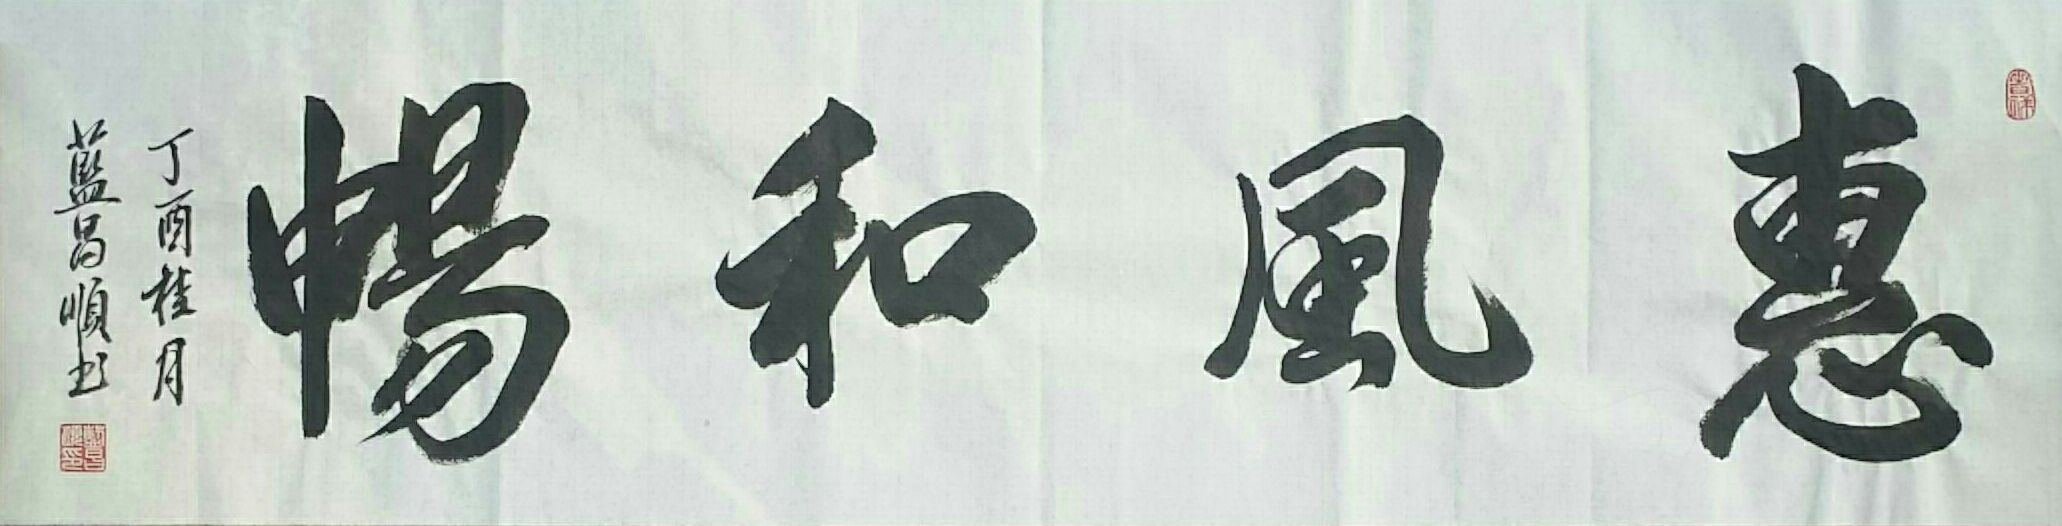 惠風和暢
丁酉桂月
藍昌順书